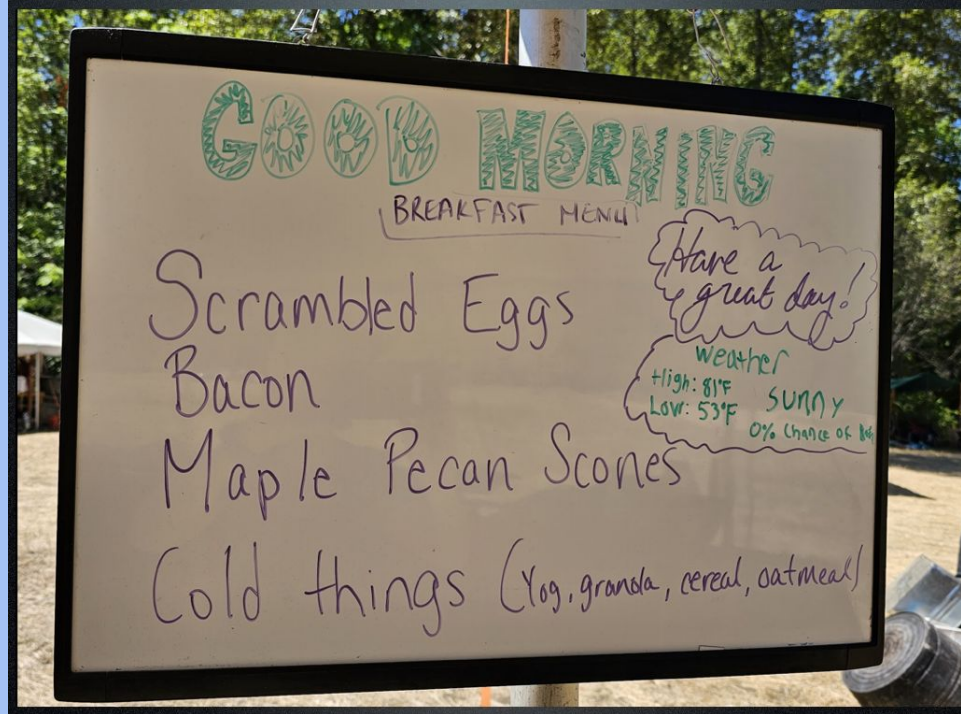 GOOD MORNING
BREAKFAST MENU
Have a
great day!
Scrambled Eggs
Weather
High: 81°F
Low: 53°F
SUNNY
0% Chance of
Bacon
Maple Pecan Scones
Cold things (Yog, granola, cereal, oatmeal)